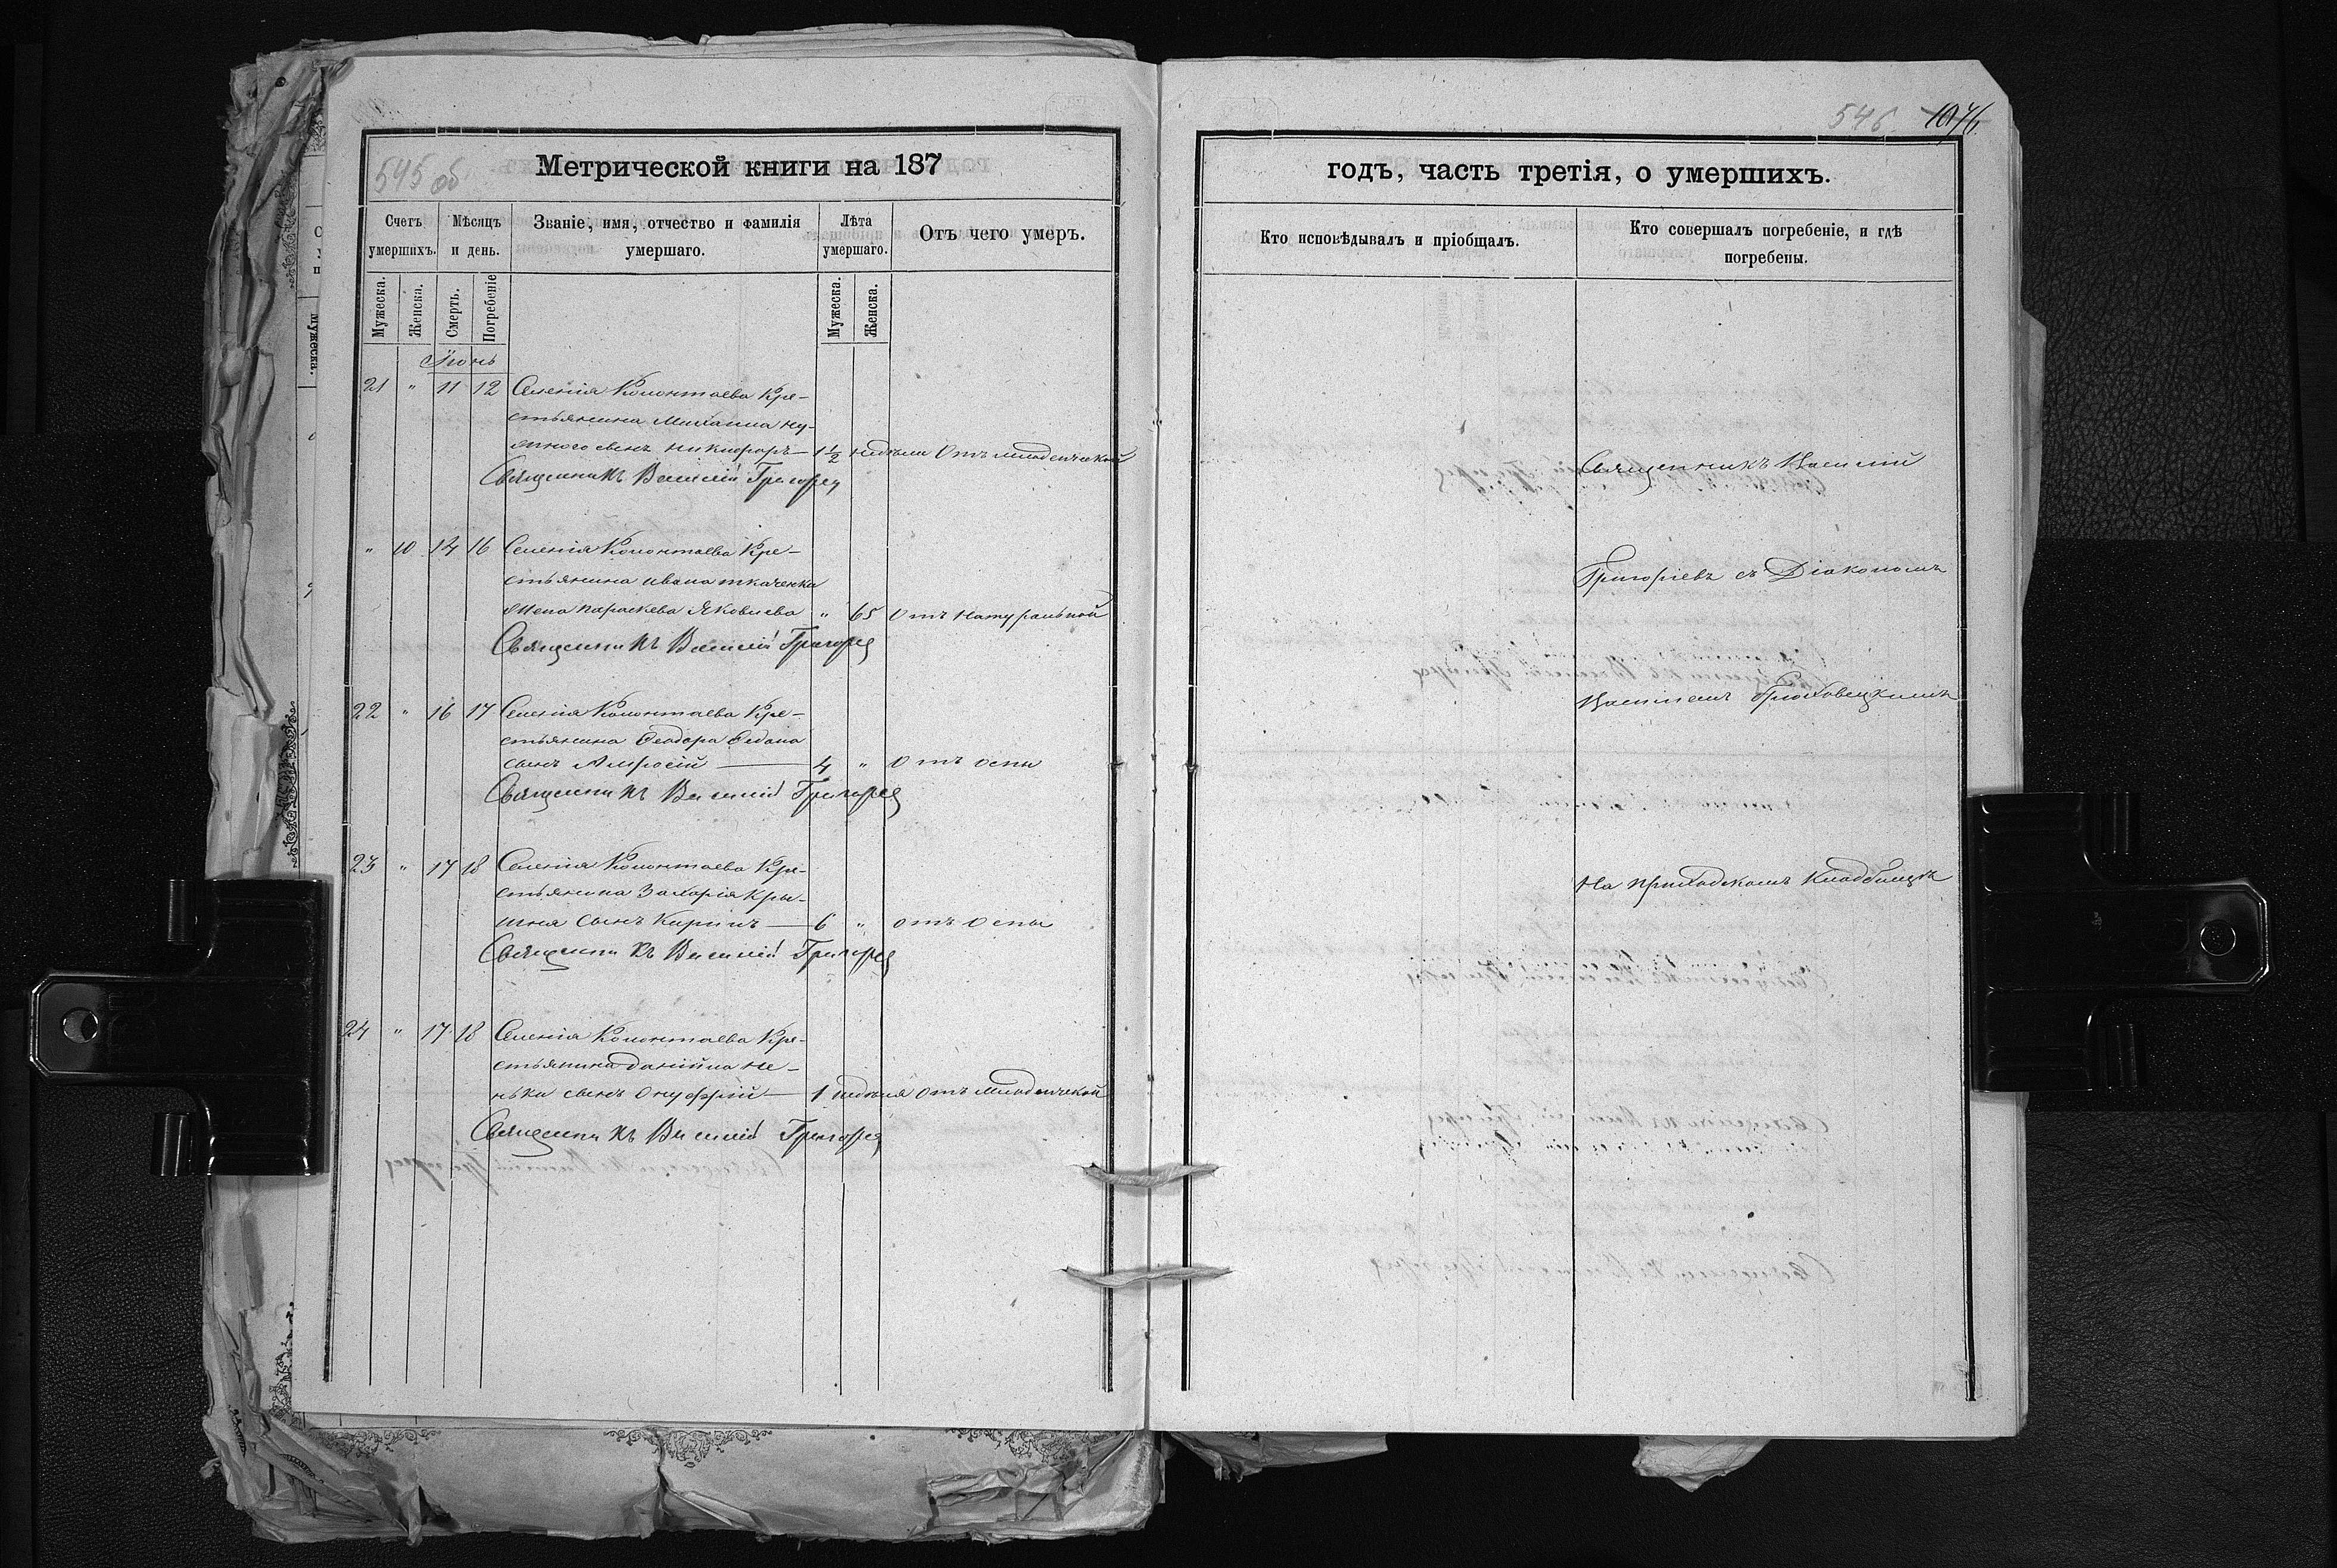 545 об
Метрической книги на 187
Счетъ умершихъ.
Мѣсяцъ и день.
Званіе, имя, отчество и фамилія умершаго.
Лѣта умершаго.
Отъ чего умеръ.
Мужеска.
Женска.
Смерть.
Погребеніе
Мужеска.
Женска.
Іюнь
21 " 11 12 Селенія Колонтаева Кре-
стьянина Михаила
сынъ Никифоръ — 1½ недѣли Отъ младенческой
Священникъ Василій Григорьев
" 10 14 16 Селенія Колонтаева Кре-
стьянина Ивана Ткаченка
жена Параскева Яковлева " 65 Отъ натуральной
Священникъ Василій Григорьев
22 " 16 17 Селенія Колонтаева Кре-
стьянина Феодора
сынъ Амросій — 4 " Отъ оспы
Священникъ Василій Григорьев
23 " 17 18 Селенія Колонтаева Кре-
стьянина Захарія Кры-
сынъ Кирилъ — 6 " отъ оспы
Священникъ Василій Григорьев
24 " 17 18 Селенія Колонтаева Кре-
стьянина Даніила Не-
ньки сынъ Онуфрій — 1 недѣля Отъ младенческой
Священникъ Василій Григорьев
546 1076
годъ, часть третія, о умершихъ.
Кто исповѣдывалъ и пріобщалъ.
Кто совершалъ погребеніе, и гдѣ погребены.
Священникъ Василій
Григорьевъ съ Діакономъ
Василіемъ
На приходскомъ кладбищѣ